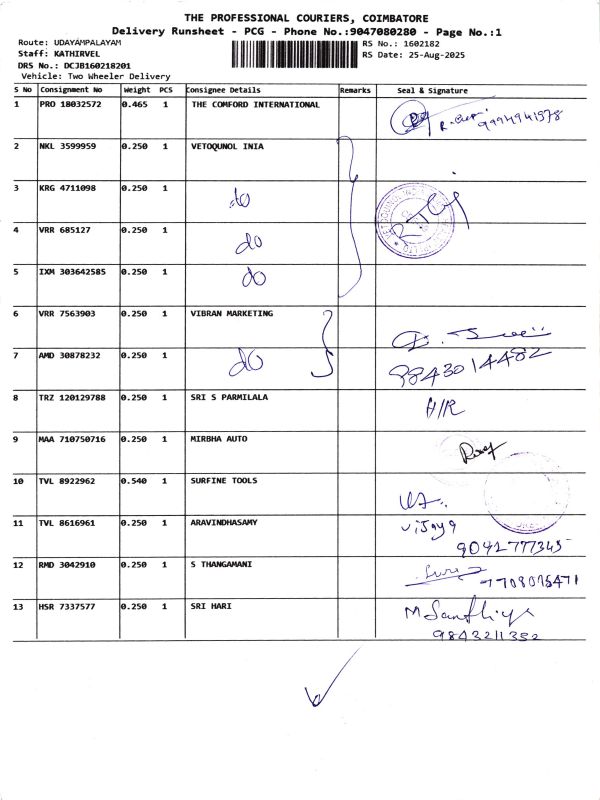 THE PROFESSIONAL COURIERS, COIMBATORE
Delivery Runsheet - PCG - Phone No.:9047080280 - Page No.:1
Route: UDAYAMPALAYAM
Staff: KATHIRVEL
DRS No.: DCJB160218201
Vehicle: Two Wheeler Delivery
RS No.: 1602182
RS Date: 25-Aug-2025
S No Consignment No Weight PCS Consignee Details Remarks Seal & Signature
1 PRO 18032572 0.465 1 THE COMFORD INTERNATIONAL
9994941578
2 NKL 3599959 0.250 1 VETOQUNOL INIA
3 KRG 4711098 0.250 1 do
4 VRR 685127 0.250 1 do
5 IXM 303642585 0.250 1 do
6 VRR 7563903 0.250 1 VIBRAN MARKETING
7 AMD 30878232 0.250 1 do 9843014482
8 TRZ 120129788 0.250 1 SRI S PARMILALA H/R
9 MAA 710750716 0.250 1 MIRBHA AUTO
10 TVL 8922962 0.540 1 SURFINE TOOLS
11 TVL 8616961 0.250 1 ARAVINDHASAMY vijaya
9041777345
12 RMD 3042910 0.250 1 S THANGAMANI
7708015471
13 HSR 7337577 0.250 1 SRI HARI M Santhiya
9843211352